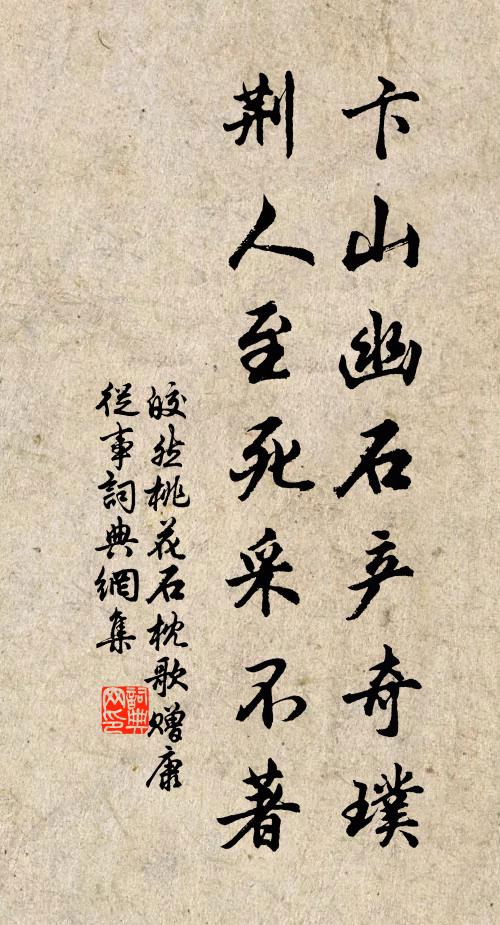 卞山幽石产奇璞
荆人至死采不著
皎然桃花石枕歌赠康
從事詞典網集
詞典
网印